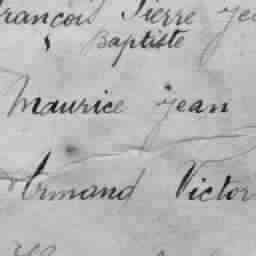 François Pierre Jea
Baptiste
Maurice Jean
Armand Victor